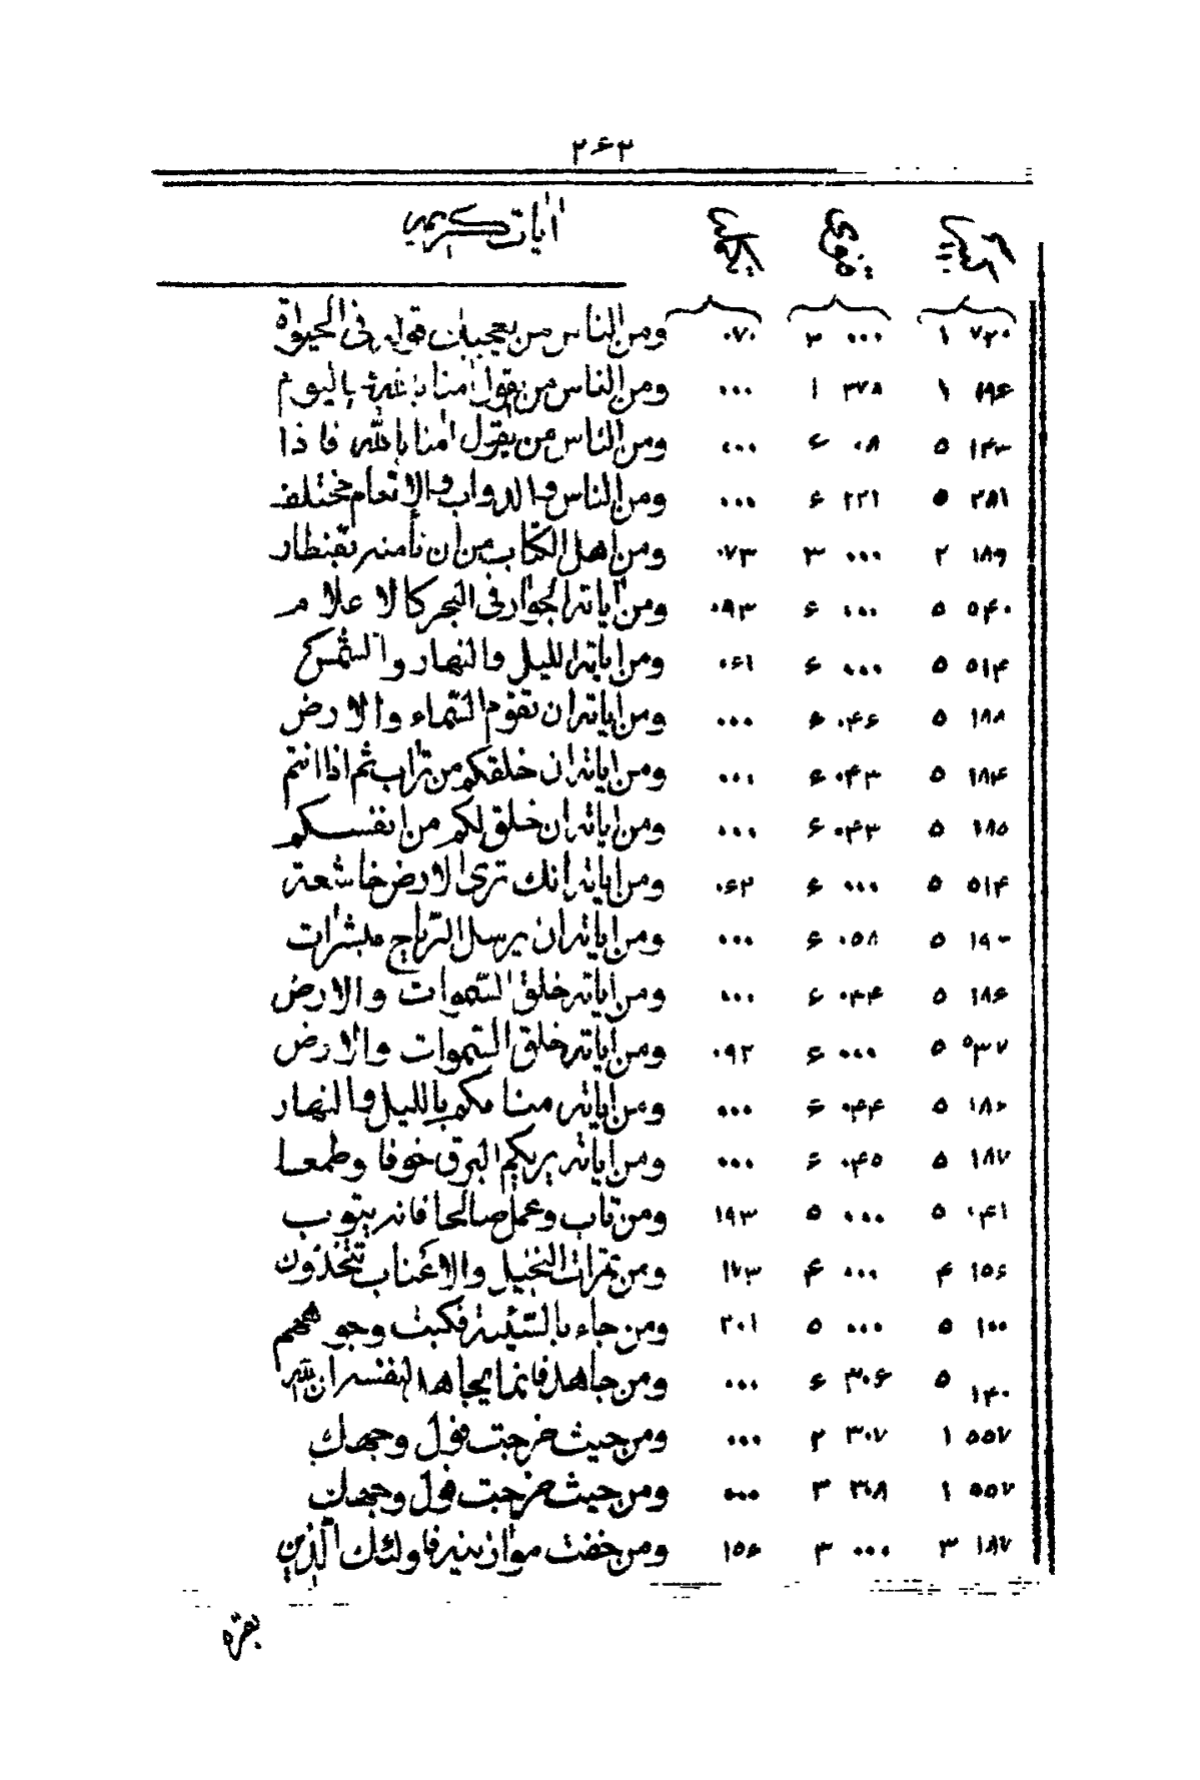 ۲۶۲
ایات کریمه
۷۲۰ ۱ ۰۰۰ ۳ ۰۷۰ ومن الناس من یعجبک قوله فی الحیواة
۱۹۶ ۱ ۳۷۸ ۱ ۰۰۰ ومن الناس من یقول امنا بالله بالیوم
۱۴۳ ۵ ۰۸ ۶ ۰۰۰ ومن الناس من یقول امنا بالله فاذا
۲۸۱ ۵ ۲۲۱ ۶ ۰۰۰ ومن الناس والدواب والانعام مختلف
۱۸۹ ۲ ۰۰۰ ۳ ۰۷۳ ومن اهل الکتاب من ان تامنه بقنطار
۵۴۰ ۵ ۰۰۰ ۶ ۰۹۳ ومن ایاته الجوار فی البحر کالاعلام
۵۱۴ ۵ ۰۰۰ ۶ ۰۶۱ ومن ایاته اللیل والنهار والشمس
۱۸۸ ۵ ۰۴۶ ۶ ۰۰۰ ومن ایاته ان تقوم السماء والارض
۱۸۴ ۵ ۰۴۳ ۶ ۰۰۰ ومن ایاته ان خلقکم من تراب ثم اذا انتم
۱۸۵ ۵ ۰۴۳ ۶ ۰۰۰ ومن ایاته ان خلق لکم من انفسکم
۵۱۴ ۵ ۰۰۰ ۶ ۰۶۲ ومن ایاته انک تری الارض خاشعة
۱۹۰ ۵ ۰۵۸ ۶ ۰۰۰ ومن ایاته ان یرسل الریاح مبشرات
۱۸۶ ۵ ۰۴۴ ۶ ۰۰۰ ومن ایاته خلق السموات والارض
۵۳۷ ۵ ۰۰۰ ۶ ۰۹۲ ومن ایاته خلق السموات والارض
۱۸۶ ۵ ۰۴۴ ۶ ۰۰۰ ومن ایاته منامکم باللیل والنهار
۱۸۷ ۵ ۰۴۵ ۶ ۰۰۰ ومن ایاته یریکم البرق خوفا وطمعا
۰۴۱ ۵ ۰۰۰ ۵ ۱۹۳ ومن تاب وعمل صالحا فانه یتوب
۱۵۶ ۴ ۰۰۰ ۴ ۱۷۳ ومن ثمرات النخیل والاعناب تتخذون
۱۰۰ ۵ ۰۰۰ ۵ ۲۰۱ ومن جاء بالسیئة فکبت وجوههم
۱۴۰ ۵ ۳۰۶ ۶ ۰۰۰ ومن جاهد فانما یجاهد لنفسه ان الله
۵۵۷ ۱ ۳۰۷ ۲ ۰۰۰ ومن حیث خرجت فول وجهک
۵۵۷ ۱ ۳۰۸ ۳ ۰۰۰ ومن حیث خرجت فول وجهک
۱۸۷ ۳ ۰۰۰ ۳ ۱۵۶ ومن خفت موازینه فاولئک الذین
بقره